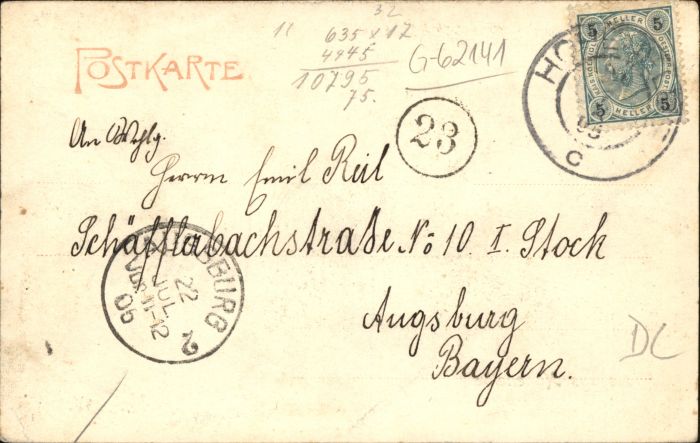 32
11 635 x 17
4445
10795
75.
G-62141
POSTKARTE
5 HELLER 5
5 HELLER 5
HO
05
C
23
An Wohlg.
Herrn Emil Reil
Schäfflerbachstraße No 10 I. Stock
Augsburg
Bayern.
AUGSBURG 2
22
JUL
VOR 11-12
05
DC